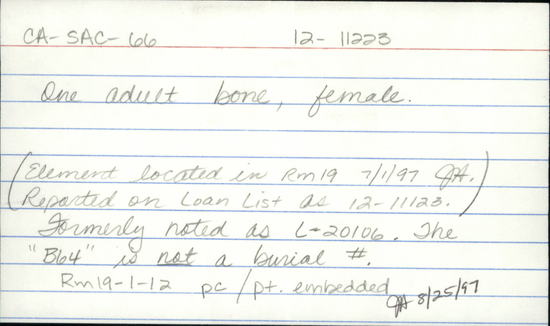 CA-SAC-66 12-11223
One adult bone, female.
(Element located in Rm19 7/1/97 JA.
Reported on Loan List as 12-11123.)
Formerly noted as L-20106. The
"B64" is not a burial #.
Rm19-1-12 pc/pt. embedded
JA 8/25/97